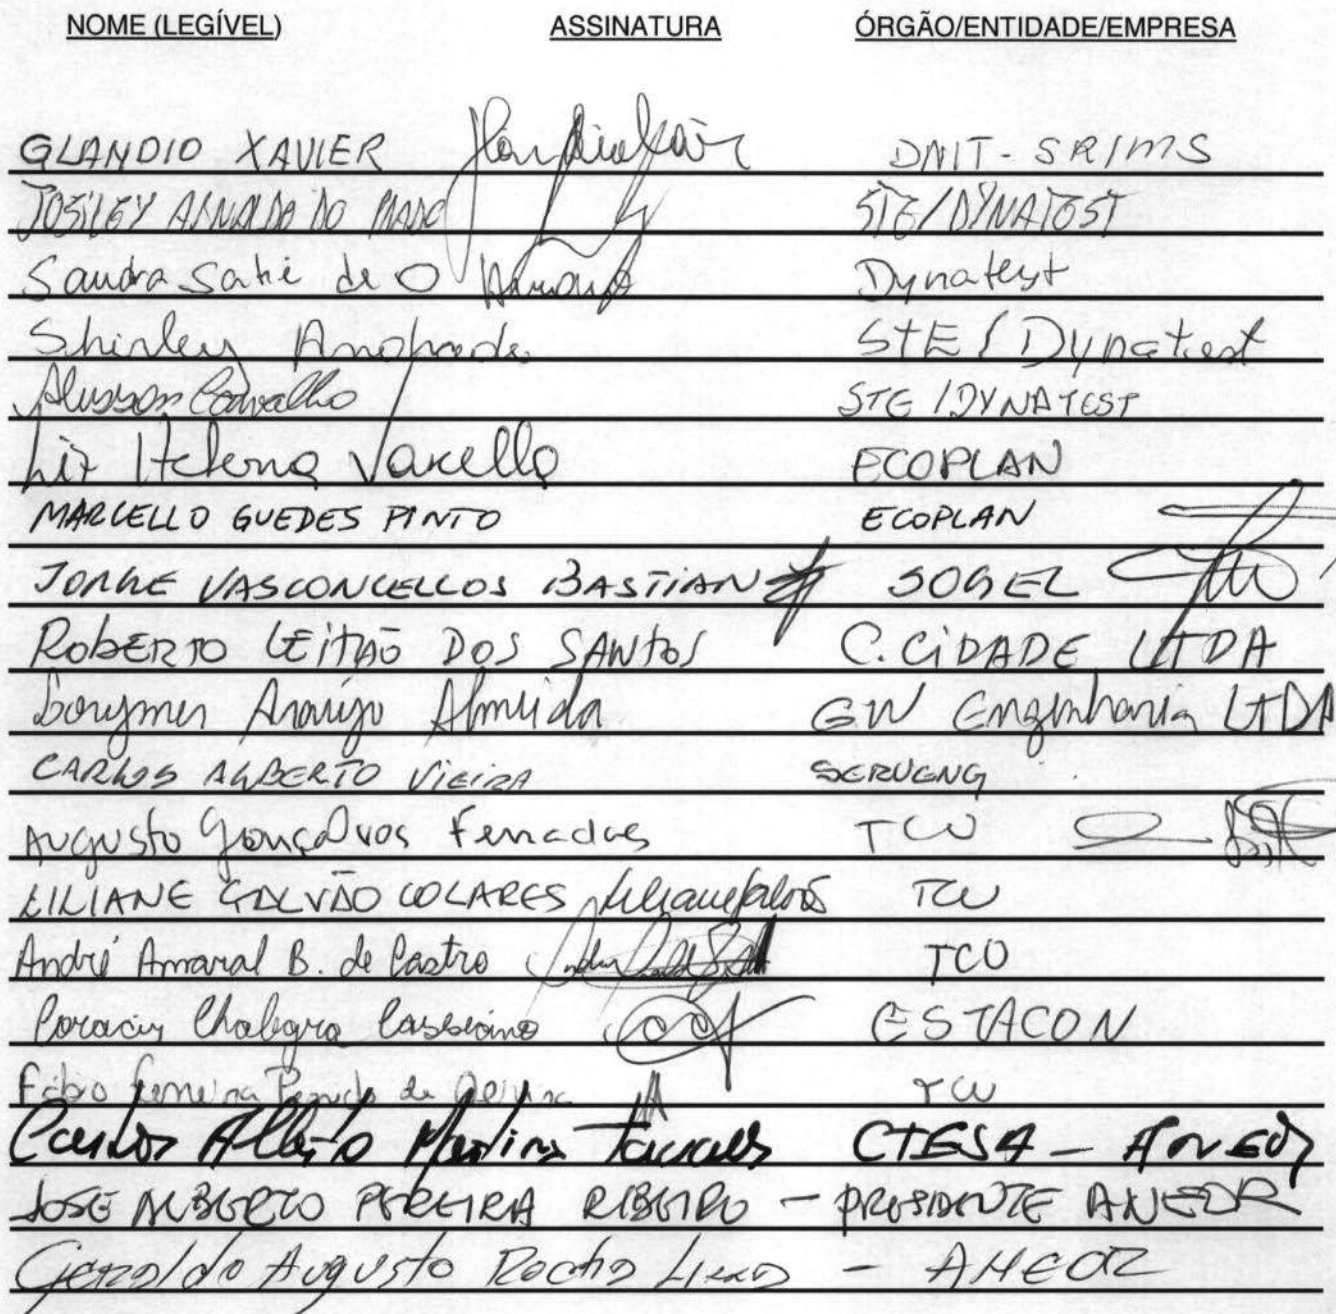 NOME (LEGÍVEL) ASSINATURA ÓRGÃO/ENTIDADE/EMPRESA
GLANDIO XAVIER DNIT - SR/MS
JOSILEY ARNALDO DO PRADO STE/DYNATEST
Sandra Satie de O Dynatest
Shirley Andrade STE / Dynatest
Alysson Carvalho STE / DYNATEST
Helena Varella ECOPLAN
MARCELLO GUEDES PINTO ECOPLAN
JORGE VASCONCELLOS BASTIAN SOGEL
ROBERTO LEITÃO DOS SANTOS C. CIDADE LTDA
Araújo Almeida GW Engenharia LTDA
CARLOS ALBERTO VIEIRA SERVENG
Augusto Gonçalves TCU
LILIANE GALVÃO COLARES TCU
André Amaral B. de Castro TCU
Cassiano ESTACON
Fábio Ferreira de TCU
Carlos Alberto Martins CTESA - ANEOR
JOSE ALBERTO PEREIRA RIBEIRO - PRESIDENTE ANEOR
Geraldo Augusto Rocha - ANEOR